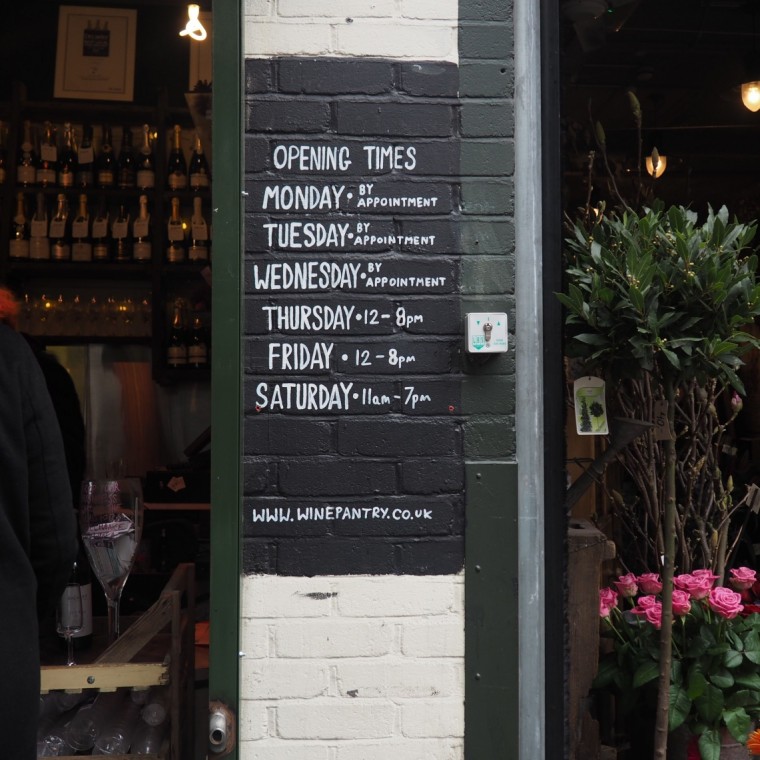 OPENING TIMES
MONDAY • BY APPOINTMENT
TUESDAY • BY APPOINTMENT
WEDNESDAY • BY APPOINTMENT
THURSDAY • 12 - 8pm
FRIDAY • 12 - 8pm
SATURDAY • 11am - 7pm
WWW.WINEPANTRY.CO.UK